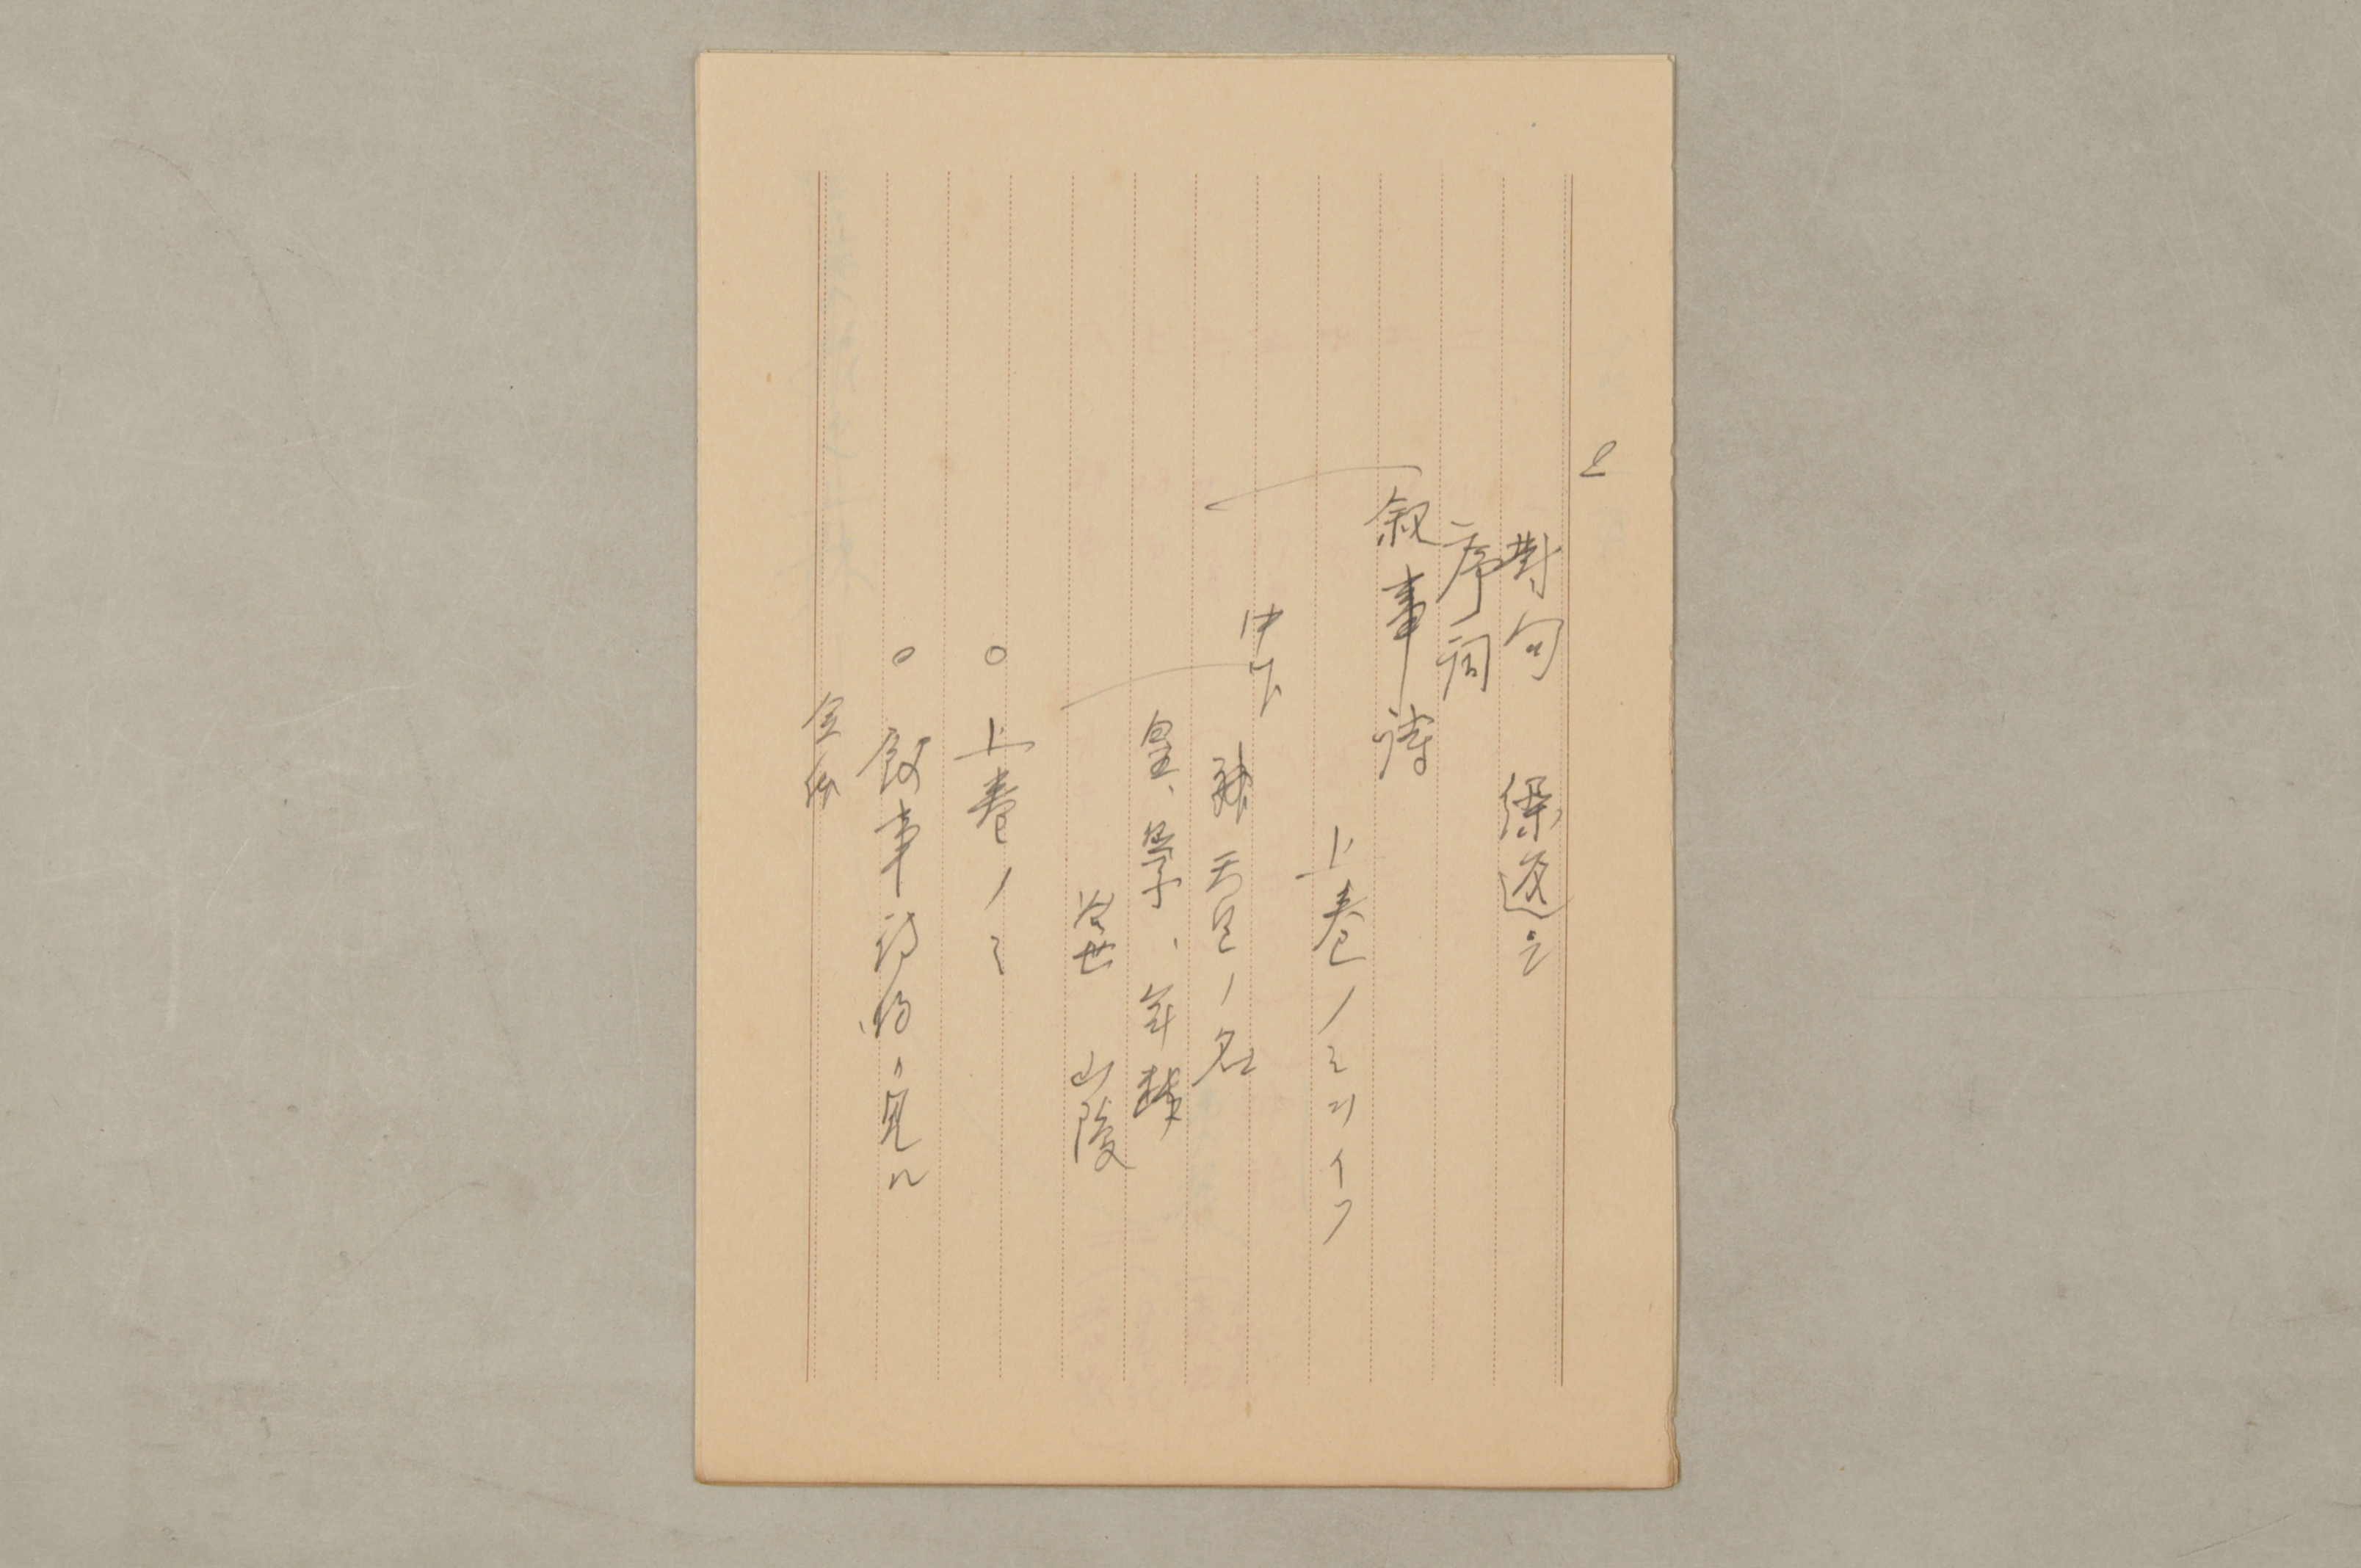 と
對句 繰返し
序詞
叙事詩
上巻ノミヲイフ
中下
天皇ノ名
皇、挙、年齢
治世 山陵
○上巻ノミ
○叙事詩的ニ見ル
全体